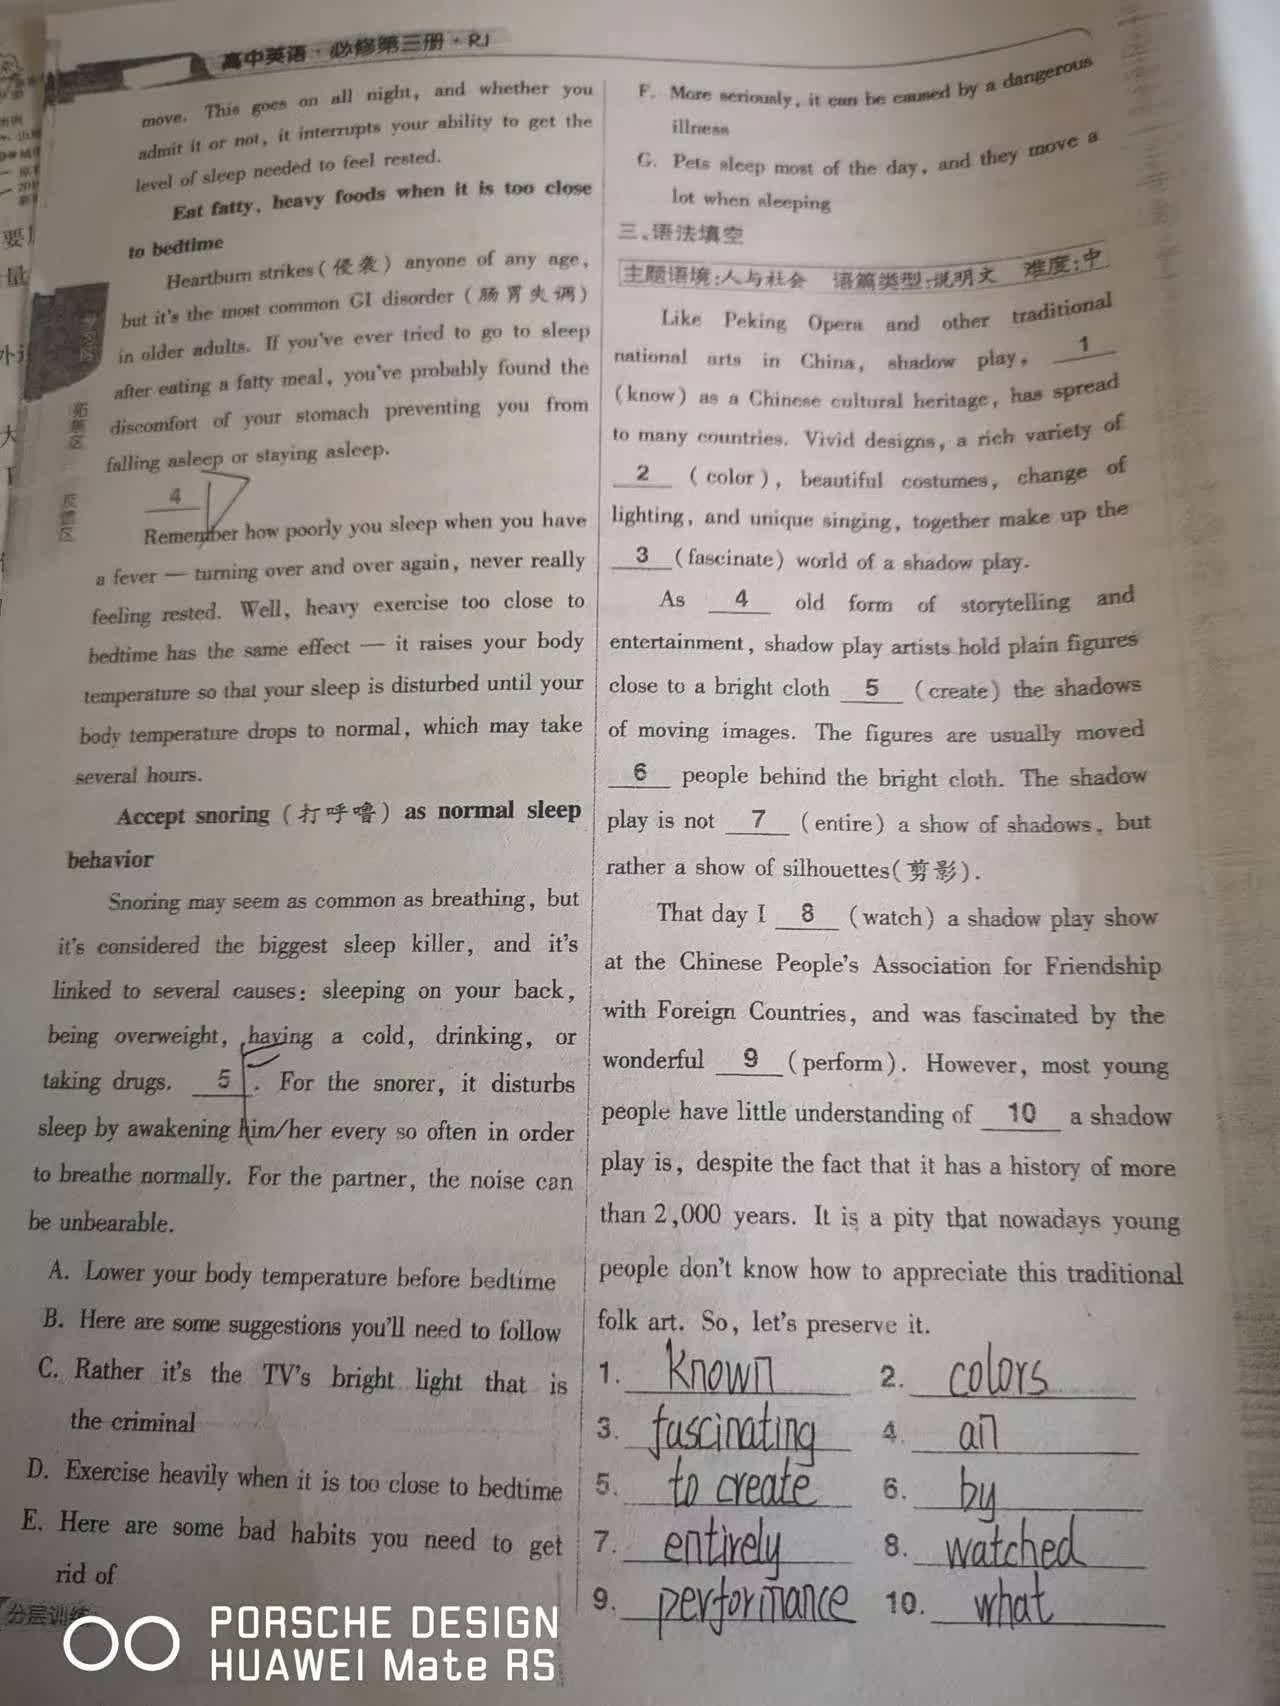 高中英语·必修第三册·RJ
move. This goes on all night, and whether you
admit it or not, it interrupts your ability to get the
level of sleep needed to feel rested.
Eat fatty, heavy foods when it is too close
to bedtime
Heartburn strikes(侵袭) anyone of any age,
but it's the most common GI disorder (肠胃失调)
in older adults. If you've ever tried to go to sleep
after eating a fatty meal, you've probably found the
discomfort of your stomach preventing you from
falling asleep or staying asleep.
4
Remember how poorly you sleep when you have
a fever — turning over and over again, never really
feeling rested. Well, heavy exercise too close to
bedtime has the same effect — it raises your body
temperature so that your sleep is disturbed until your
body temperature drops to normal, which may take
several hours.
Accept snoring (打呼噜) as normal sleep
behavior
Snoring may seem as common as breathing, but
it's considered the biggest sleep killer, and it's
linked to several causes: sleeping on your back,
being overweight, having a cold, drinking, or
taking drugs. 5 . For the snorer, it disturbs
sleep by awakening him/her every so often in order
to breathe normally. For the partner, the noise can
be unbearable.
A. Lower your body temperature before bedtime
B. Here are some suggestions you'll need to follow
C. Rather it's the TV's bright light that is
the criminal
D. Exercise heavily when it is too close to bedtime
E. Here are some bad habits you need to get
rid of
F. More seriously, it can be caused by a dangerous
illness
G. Pets sleep most of the day, and they move a
lot when sleeping
三、语法填空
主题语境:人与社会 语篇类型:说明文 难度:中
Like Peking Opera and other traditional
national arts in China, shadow play, 1
(know) as a Chinese cultural heritage, has spread
to many countries. Vivid designs, a rich variety of
2 (color), beautiful costumes, change of
lighting, and unique singing, together make up the
3 (fascinate) world of a shadow play.
As 4 old form of storytelling and
entertainment, shadow play artists hold plain figures
close to a bright cloth 5 (create) the shadows
of moving images. The figures are usually moved
6 people behind the bright cloth. The shadow
play is not 7 (entire) a show of shadows, but
rather a show of silhouettes(剪影).
That day I 8 (watch) a shadow play show
at the Chinese People's Association for Friendship
with Foreign Countries, and was fascinated by the
wonderful 9 (perform). However, most young
people have little understanding of 10 a shadow
play is, despite the fact that it has a history of more
than 2,000 years. It is a pity that nowadays young
people don't know how to appreciate this traditional
folk art. So, let's preserve it.
1. known 2. colors
3. fascinating 4. an
5. to create 6. by
7. entirely 8. watched
9. performance 10. what
分层训练
PORSCHE DESIGN
HUAWEI Mate RS